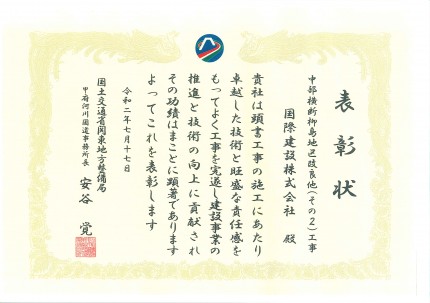 表彰状
中部横断柳島地区改良他(その2)工事
国際建設株式会社 殿
貴社は頭書工事の施工にあたり
卓越した技術と旺盛な責任感を
もってよく工事を完遂し建設事業の
推進と技術の向上に貢献され
その功績はまことに顕著であります
よってこれを表彰します
令和二年七月十七日
国土交通省関東地方整備局
甲府河川国道事務所長 安谷 覚